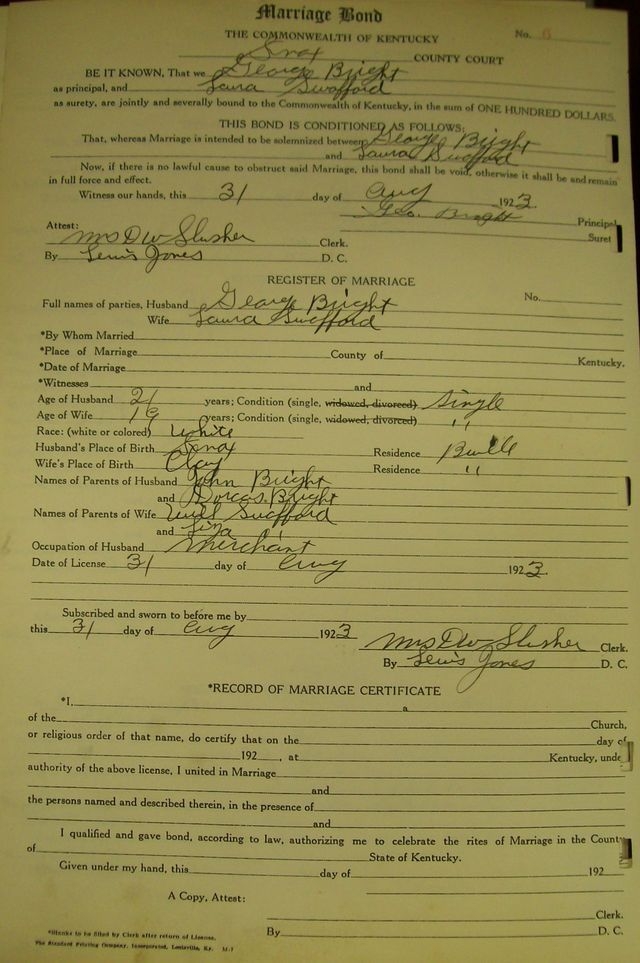 Marriage Bond
No. 6
THE COMMONWEALTH OF KENTUCKY
Knox COUNTY COURT
BE IT KNOWN, That we George Bright
as principal, and Laura Swafford
as surety, are jointly and severally bound to the Commonwealth of Kentucky, in the sum of ONE HUNDRED DOLLARS.
THIS BOND IS CONDITIONED AS FOLLOWS:
That, whereas Marriage is intended to be solemnized between George Bright
and Laura Swafford
Now, if there is no lawful cause to obstruct said Marriage, this bond shall be void, otherwise it shall be and remain
in full force and effect.
Witness our hands, this 31 day of Aug 1923.
Geo. Bright Principal
Suret
Attest:
Mrs D W Slusher Clerk.
By Lewis Jones D. C.
REGISTER OF MARRIAGE
No.
Full names of parties, Husband George Bright
Wife Laura Swafford
*By Whom Married
*Place of Marriage County of Kentucky.
*Date of Marriage
*Witnesses and
Age of Husband 21 years; Condition (single, widowed, divorced) Single
Age of Wife 19 years; Condition (single, widowed, divorced) "
Race: (white or colored) White
Husband's Place of Birth Knox Residence Bville
Wife's Place of Birth Clay Residence "
Names of Parents of Husband John Bright
and Dorcas Bright
Names of Parents of Wife Will Swafford
and Liza "
Occupation of Husband Merchant
Date of License 31 day of Aug 1923.
Subscribed and sworn to before me by
this 31 day of Aug 1923
Mrs D W Slusher Clerk.
By Lewis Jones D. C.
*RECORD OF MARRIAGE CERTIFICATE
*I, a
of the Church,
or religious order of that name, do certify that on the day of
192 , at Kentucky, unde
authority of the above license, I united in Marriage
and
the persons named and described therein, in the presence of
and
I qualified and gave bond, according to law, authorizing me to celebrate the rites of Marriage in the County
of State of Kentucky.
Given under my hand, this day of 192
A Copy, Attest:
Clerk.
By D. C.
*Blanks to be filled by Clerk after return of License.
The Standard Printing Company, Incorporated, Louisville, Ky.